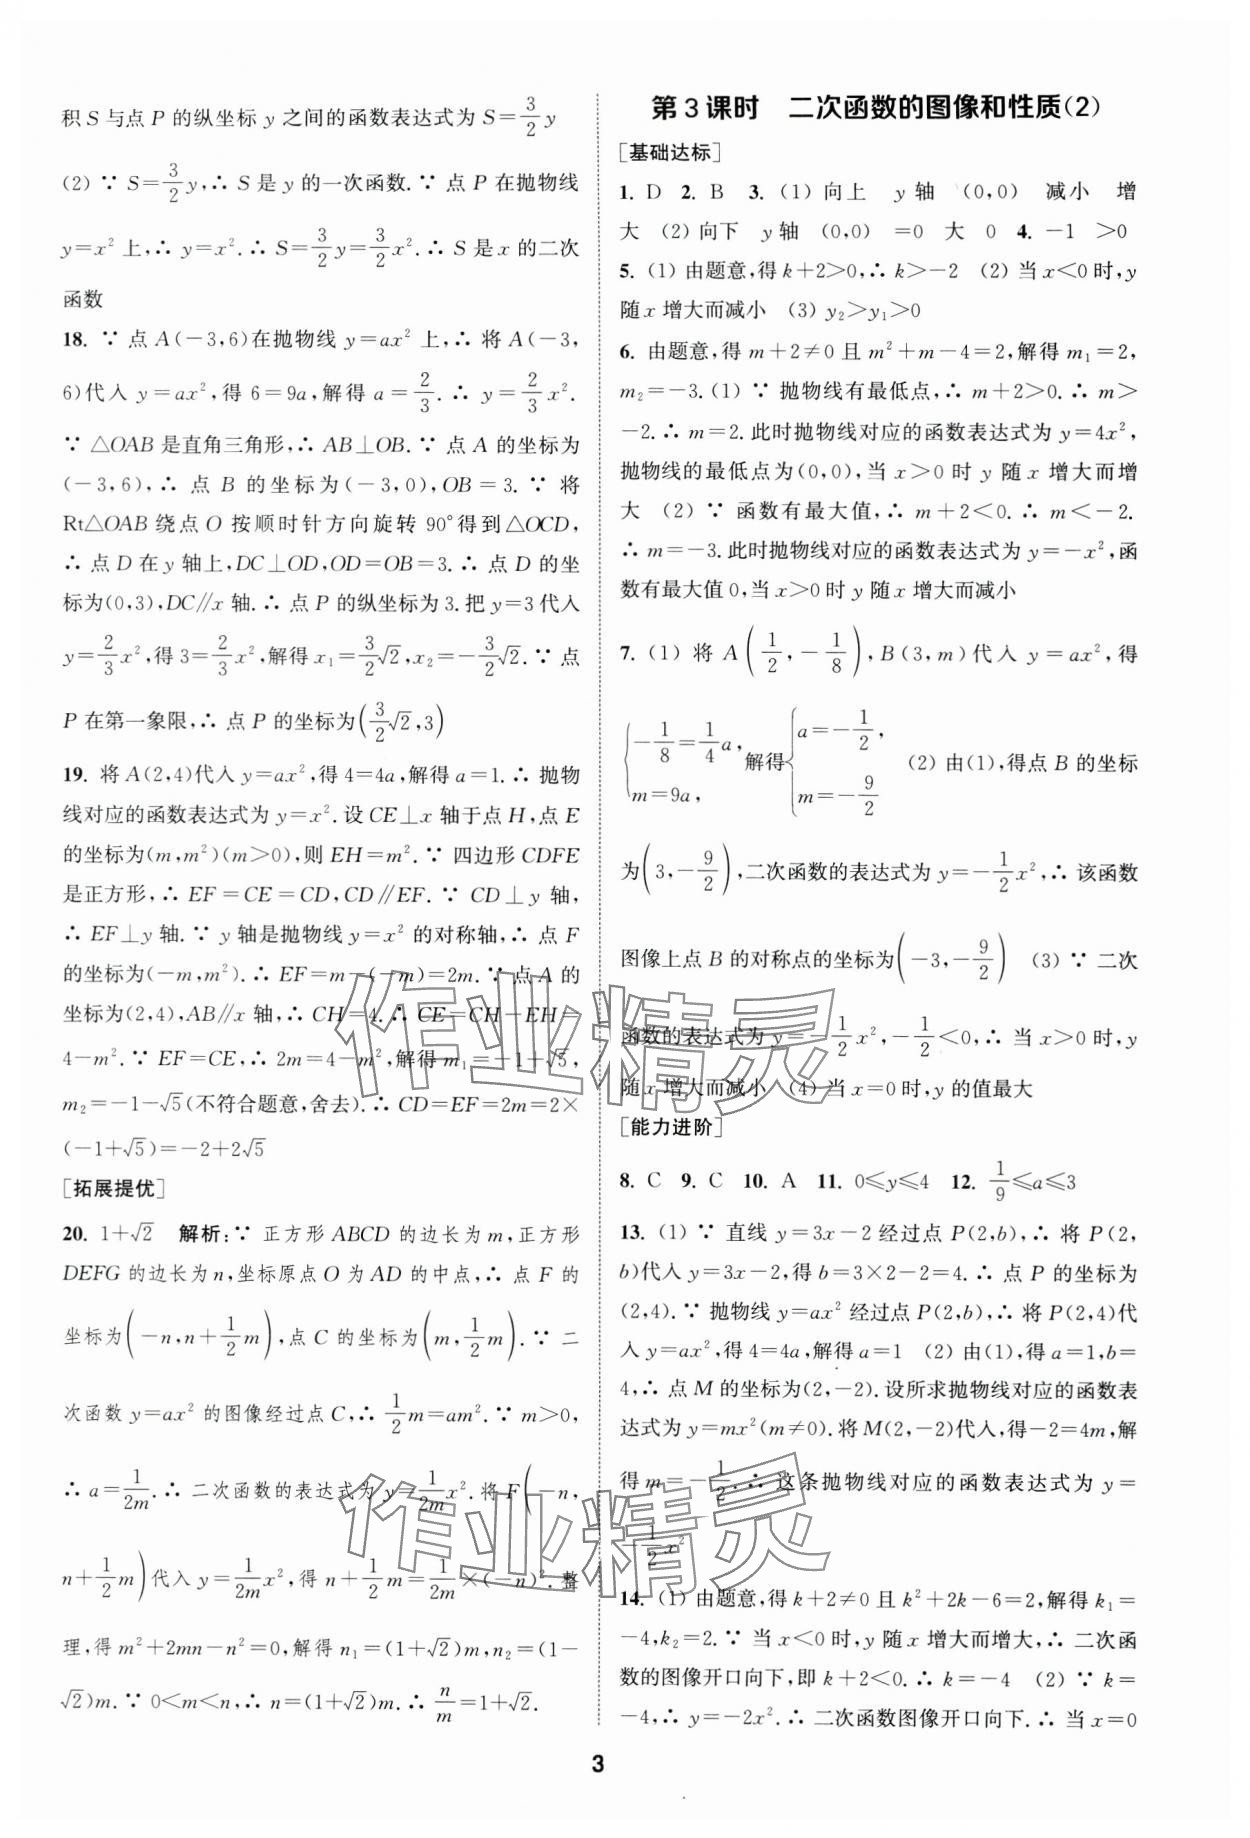 积 S 与点 P 的纵坐标 y 之间的函数表达式为 S=3/2 y
(2) ∵ S=3/2 y,∴ S 是 y 的一次函数.∵ 点 P 在抛物线
y=x² 上,∴ y=x².∴ S=3/2 y=3/2 x².∴ S 是 x 的二次
函数
18. ∵ 点 A(-3,6)在抛物线 y=ax² 上,∴ 将 A(-3,
6)代入 y=ax²,得 6=9a,解得 a=2/3.∴ y=2/3 x².
∵ △OAB 是直角三角形,∴ AB⊥OB.∵ 点 A 的坐标为
(-3,6),∴ 点 B 的坐标为(-3,0),OB=3.∵ 将
Rt△OAB 绕点 O 按顺时针方向旋转 90°得到△OCD,
∴ 点 D 在 y 轴上,DC⊥OD,OD=OB=3.∴ 点 D 的坐
标为(0,3),DC∥x 轴.∴ 点 P 的纵坐标为 3.把 y=3 代入
y=2/3 x²,得 3=2/3 x²,解得 x₁=3/2 √2,x₂=-3/2 √2.∵ 点
P 在第一象限,∴ 点 P 的坐标为(3/2 √2,3)
19. 将 A(2,4)代入 y=ax²,得 4=4a,解得 a=1.∴ 抛物
线对应的函数表达式为 y=x².设 CE⊥x 轴于点 H,点 E
的坐标为(m,m²)(m>0),则 EH=m².∵ 四边形 CDFE
是正方形,∴ EF=CE=CD,CD∥EF.∵ CD⊥y 轴,
∴ EF⊥y 轴.∵ y 轴是抛物线 y=x² 的对称轴,∴ 点 F
的坐标为(-m,m²).∴ EF=m-(-m)=2m.∵ 点 A 的
坐标为(2,4),AB∥x 轴,∴ CH=4.∴ CE=CH-EH=
4-m².∵ EF=CE,∴ 2m=4-m²,解得 m₁=-1+√5,
m₂=-1-√5(不符合题意,舍去).∴ CD=EF=2m=2×
(-1+√5)=-2+2√5
[拓展提优]
20. 1+√2 解析:∵ 正方形 ABCD 的边长为 m,正方形
DEFG 的边长为 n,坐标原点 O 为 AD 的中点,∴ 点 F 的
坐标为(-n,n+1/2 m),点 C 的坐标为(m,1/2 m).∵ 二
次函数 y=ax² 的图像经过点 C,∴ 1/2 m=am².∵ m>0,
∴ a=1/2m.∴ 二次函数的表达式为 y=1/2m x².将 F(-n,
n+1/2 m)代入 y=1/2m x²,得 n+1/2 m=1/2m×(-n)².整
理,得 m²+2mn-n²=0,解得 n₁=(1+√2)m,n₂=(1-
√2)m.∵ 0<m<n,∴ n=(1+√2)m.∴ n/m=1+√2.
第 3 课时 二次函数的图像和性质(2)
[基础达标]
1. D 2. B 3. (1) 向上 y 轴 (0,0) 减小 增
大 (2) 向下 y 轴 (0,0) =0 大 0 4. -1 >0
5. (1) 由题意,得 k+2>0,∴ k>-2 (2) 当 x<0 时,y
随 x 增大而减小 (3) y₂>y₁>0
6. 由题意,得 m+2≠0 且 m²+m-4=2,解得 m₁=2,
m₂=-3.(1) ∵ 抛物线有最低点,∴ m+2>0.∴ m>
-2.∴ m=2.此时抛物线对应的函数表达式为 y=4x²,
抛物线的最低点为(0,0),当 x>0 时 y 随 x 增大而增
大 (2) ∵ 函数有最大值,∴ m+2<0.∴ m<-2.
∴ m=-3.此时抛物线对应的函数表达式为 y=-x²,函
数有最大值 0,当 x>0 时 y 随 x 增大而减小
7. (1) 将 A(1/2,-1/8),B(3,m)代入 y=ax²,得
{-1/8=1/4 a, m=9a, 解得{a=-1/2, m=-9/2 (2) 由(1),得点 B 的坐标
为(3,-9/2),二次函数的表达式为 y=-1/2 x²,∴ 该函数
图像上点 B 的对称点的坐标为(-3,-9/2) (3) ∵ 二次
函数的表达式为 y=-1/2 x²,-1/2<0,∴ 当 x>0 时,y
随 x 增大而减小 (4) 当 x=0 时,y 的值最大
[能力进阶]
8. C 9. C 10. A 11. 0≤y≤4 12. 1/9≤a≤3
13. (1) ∵ 直线 y=3x-2 经过点 P(2,b),∴ 将 P(2,
b)代入 y=3x-2,得 b=3×2-2=4.∴ 点 P 的坐标为
(2,4).∵ 抛物线 y=ax² 经过点 P(2,b),∴ 将 P(2,4)代
入 y=ax²,得 4=4a,解得 a=1 (2) 由(1),得 a=1,b=
4,∴ 点 M 的坐标为(2,-2).设所求抛物线对应的函数表
达式为 y=mx²(m≠0).将 M(2,-2)代入,得-2=4m,解
得 m=-1/2.∴ 这条抛物线对应的函数表达式为 y=
-1/2 x²
14. (1) 由题意,得 k+2≠0 且 k²+2k-6=2,解得 k₁=
-4,k₂=2.∵ 当 x<0 时,y 随 x 增大而增大,∴ 二次函
数的图像开口向下,即 k+2<0.∴ k=-4 (2) ∵ k=
-4,∴ y=-2x².∴ 二次函数图像开口向下.∴ 当 x=0
3
作业精灵
作业精灵